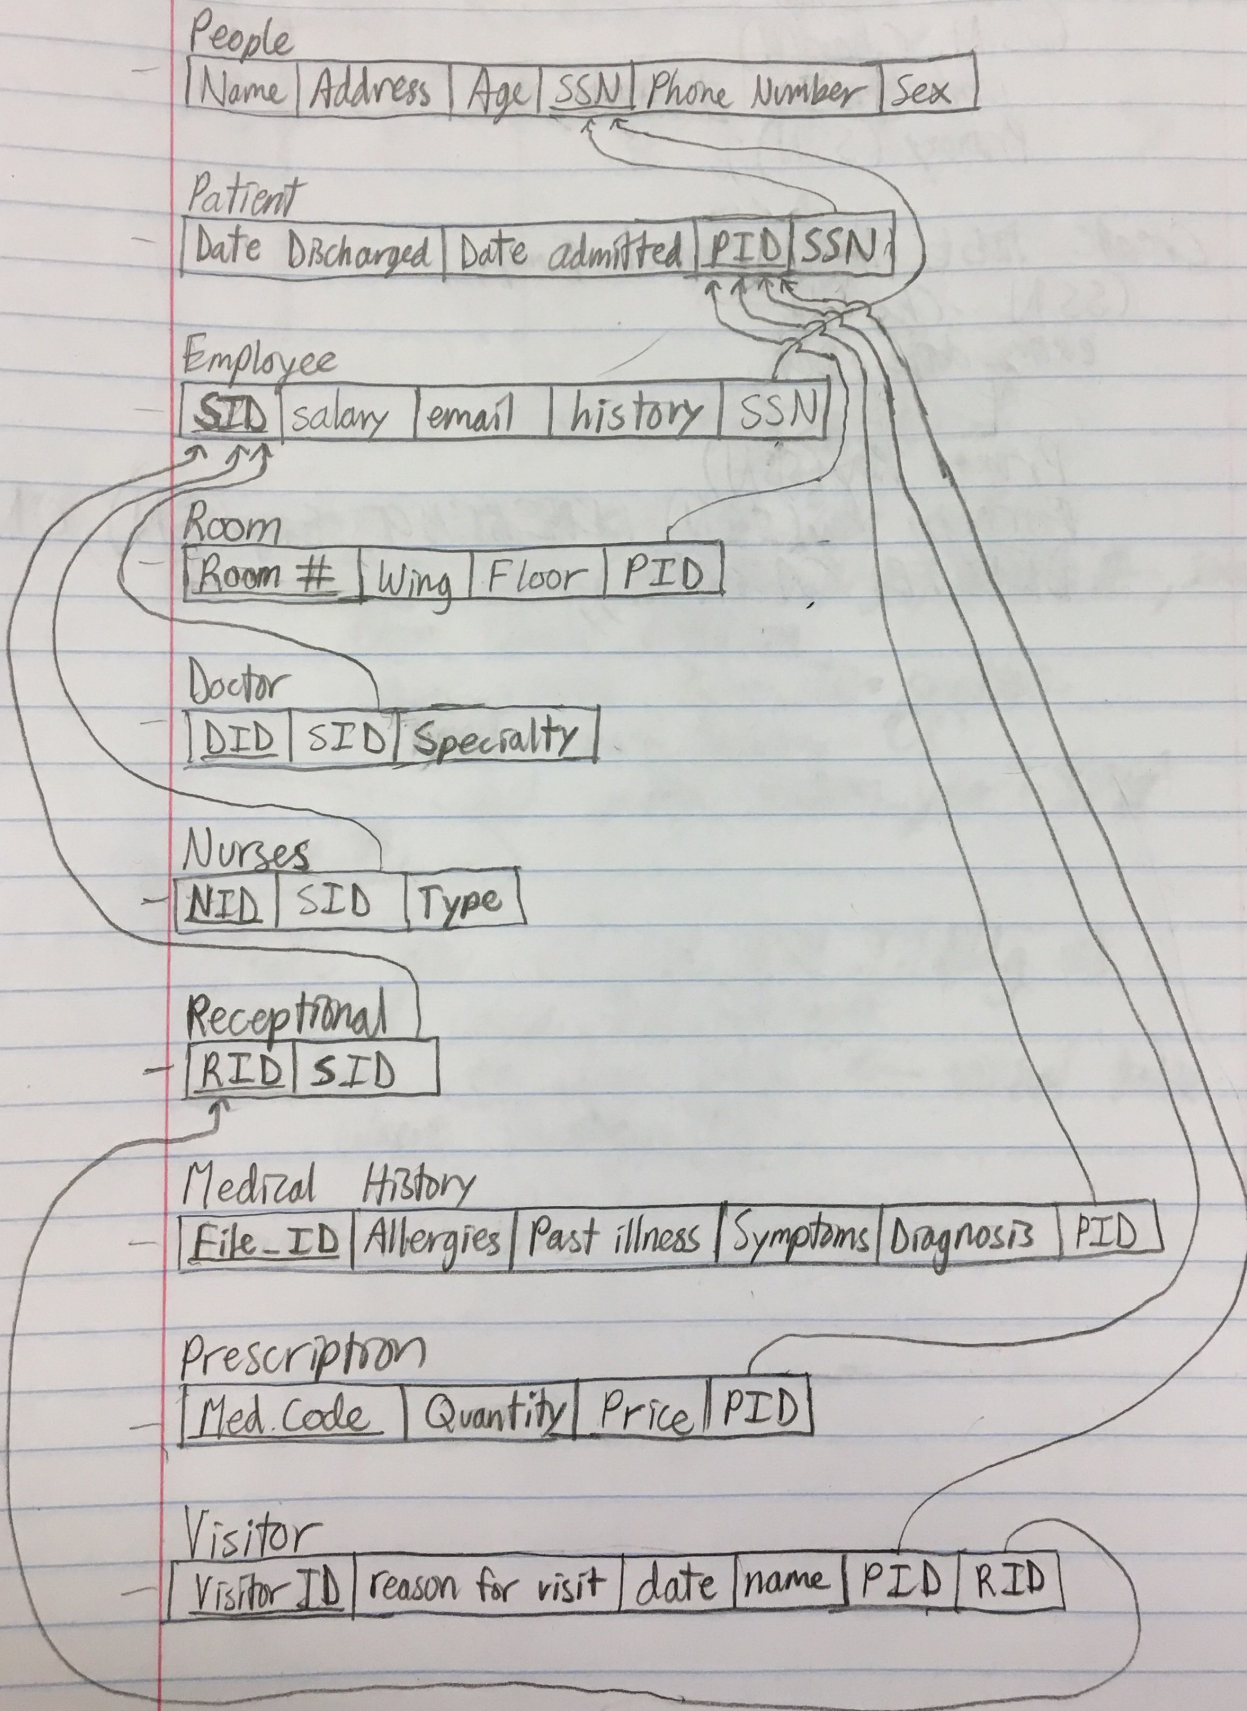 People
Name Address Age SSN Phone Number Sex
Patient
Date Discharged Date admitted PID SSN
Employee
SID salary email history SSN
Room
Room # Wing Floor PID
Doctor
DID SID Specialty
Nurses
NID SID Type
Receptional
RID SID
Medical History
File_ID Allergies Past illness Symptoms Diagnosis PID
Prescription
Med. Code Quantity Price PID
Visitor
Visitor ID reason for visit date name PID RID